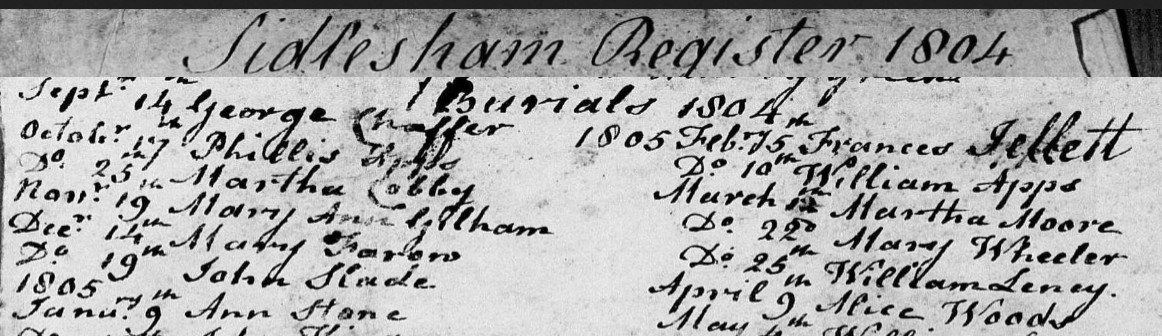 Sidlesham Register 1804
Burials 1804
Septr. 14th George Chaffer
Octobr. 17th Phillis
Do. 25th Martha Cobby
Novr. 19th Mary Ann Gilham
Decr. 14th Mary Farow
Do 19th John Slade
1805
Janury 9th Ann Stone
1805 Feb. 5th Frances Jellett
Do. 10th William Apps
March Martha Moore
Do. 22d Mary Wheeler
Do. 25th William Leney.
April 9th Alice Woods
May